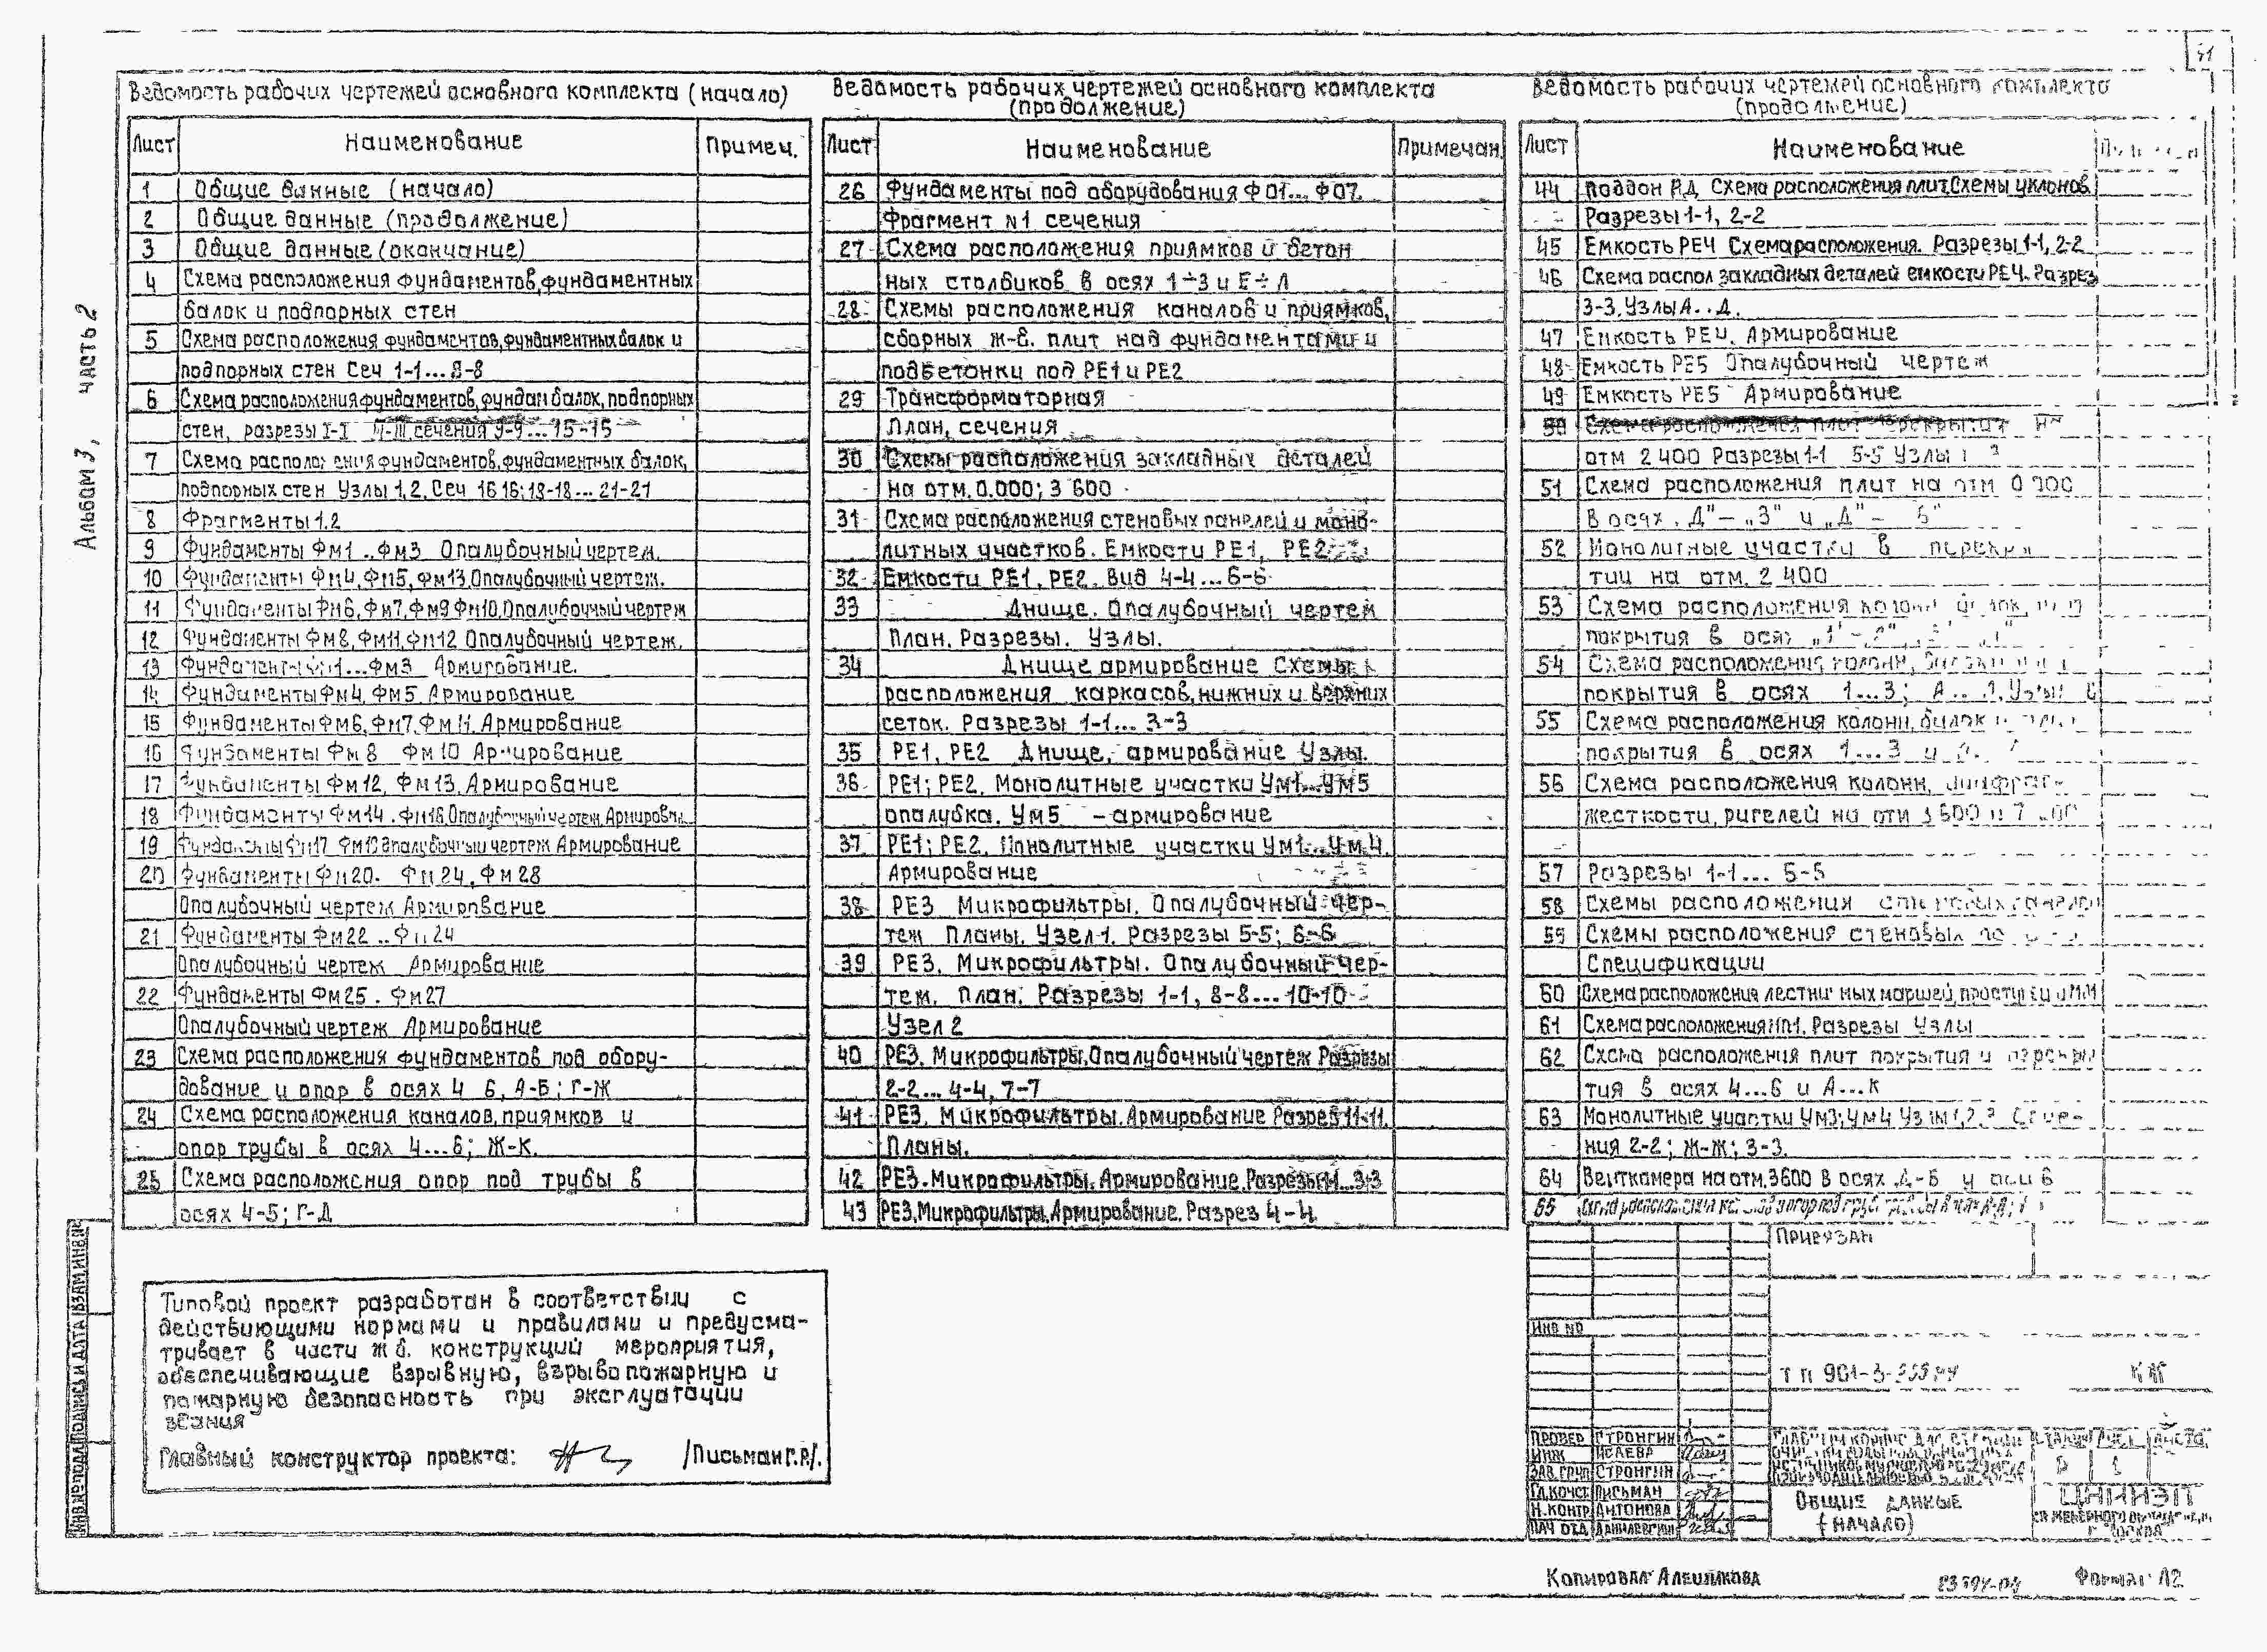 51
Альбом 3, часть 2
Ведомость рабочих чертежей основного комплекта (начало)
Лист Наименование Примеч.
1 Общие данные (начало)
2 Общие данные (продолжение)
3 Общие данные (окончание)
4 Схема расположения фундаментов, фундаментных
балок и подпорных стен
5 Схема расположения фундаментов, фундаментных балок и
подпорных стен Сеч 1-1...8-8
6 Схема расположения фундаментов, фундам балок, подпорных
стен, разрезы I-I сечения 9-9...15-15
7 Схема расположения фундаментов, фундаментных балок,
подпорных стен Узлы 1,2. Сеч 16 16; 18-18...21-21
8 Фрагменты 1.2
9 Фундаменты Фм1..Фм3 Опалубочный чертеж.
10 Фундаменты Фм4, Фм5, Фм13. Опалубочный чертеж.
11 Фундаменты Фм6, Фм7, Фм9 Фм10. Опалубочный чертеж
12 Фундаменты Фм8, Фм11, Фм12 Опалубочный чертеж.
13 Фундаменты Фм1...Фм3 Армирование.
14 Фундаменты Фм4, Фм5 Армирование
15 Фундаменты Фм6, Фм7, Фм11. Армирование
16 Фундаменты Фм8 Фм10 Армирование
17 Фундаменты Фм12, Фм13. Армирование
18 Фундаменты Фм14. Фм16. Опалубочный чертеж, Армиров
19 Фундаменты Фм17 Опалубочный чертеж Армирование
20 Фундаменты Фм20. Фм24, Фм28
Опалубочный чертеж Армирование
21 Фундаменты Фм22..Фм24
Опалубочный чертеж Армирование
22 Фундаменты Фм25. Фм27
Опалубочный чертеж Армирование
23 Схема расположения фундаментов под обору-
дование и опор в осях 4 6, А-Б; Г-Ж
24 Схема расположения каналов, приямков и
опор трубы в осях 4...6; Ж-К.
25 Схема расположения опор под трубы в
осях 4-5; Г-Д
Ведомость рабочих чертежей основного комплекта
(продолжение)
Лист Наименование Примечан.
26 Фундаменты под оборудования Ф01...Ф07.
Фрагмент N1 сечения
27 Схема расположения приямков и бетон
ных столбиков в осях 1÷3 и Е÷Л
28 Схемы расположения каналов и приямков,
сборных ж-б. плит над фундаментами и
подбетонки под РЕ1 и РЕ2
29 Трансформаторная
План, сечения
30 Схемы расположения закладных деталей
на отм. 0.000; 3 600
31 Схема расположения стеновых панелей и моно-
литных участков. Емкости РЕ1, РЕ2
32 Емкости РЕ1, РЕ2. Вид 4-4...6-6
33 Днище. Опалубочный чертеж
План. Разрезы. Узлы.
34 Днище армирование Схемы
расположения каркасов, нижних и верхних
сеток. Разрезы 1-1...3-3
35 РЕ1, РЕ2 Днище, армирование Узлы.
36 РЕ1; РЕ2. Монолитные участки Ум1...Ум5
опалубка. Ум5 – армирование
37 РЕ1; РЕ2. Монолитные участки Ум1...Ум4.
Армирование
38 РЕ3 Микрофильтры. Опалубочный чер-
теж Планы. Узел 1. Разрезы 5-5; 6-6
39 РЕ3. Микрофильтры. Опалубочный чер-
теж. План. Разрезы 1-1, 8-8...10-10
Узел 2
40 РЕ3. Микрофильтры. Опалубочный чертеж Разрезы
2-2...4-4, 7-7
41 РЕ3. Микрофильтры. Армирование Разрез 11-11.
Планы.
42 РЕ3. Микрофильтры. Армирование. Разрезы 1-1...3-3
43 РЕ3. Микрофильтры. Армирование. Разрез 4-4.
Ведомость рабочих чертежей основного комплекта
(продолжение)
Лист Наименование
44 Поддон Схема расположения плит. Схемы уклонов.
Разрезы 1-1, 2-2
45 Емкость РЕ4 Схема расположения. Разрезы 1-1, 2-2
46 Схема распол закладных деталей емкости РЕ4. Разрез
3-3. Узлы А..Д.
47 Емкость РЕ4. Армирование
48 Емкость РЕ5 Опалубочный чертеж
49 Емкость РЕ5 Армирование
50 Схема расположения плит перекрытия на
отм 2 400 Разрезы 1-1 5-5 Узлы
51 Схема расположения плит на отм 0 000
в осях
52 Монолитные участки в перекры
тии на отм. 2 400
53 Схема расположения колонн
покрытия в осях
54 Схема расположения колонн,
покрытия в осях 1...3;
55 Схема расположения колонн, балок и
покрытия в осях 1...3 и
56 Схема расположения колонн, диафрагм
жесткости, ригелей на отм 3 600 и
57 Разрезы 1-1...5-5
58 Схемы расположения стеновых панелей
59 Схемы расположения стеновых
Спецификации
60 Схема расположения лестничных маршей, проступей и
61 Схема расположения Разрезы Узлы
62 Схема расположения плит покрытия и перекры
тия в осях 4...6 и А...К
63 Монолитные участки Ум3; Ум4 Сече-
ния 2-2; Ж-Ж; 3-3.
64 Венткамера на отм. 3600 в осях Д-Б у оси 6
65
Типовой проект разработан в соответствии с
действующими нормами и правилами и предусма-
тривает в части ж б. конструкций мероприятия,
обеспечивающие взрывную, взрывопожарную и
пожарную безопасность при эксплуатации
здания
Главный конструктор проекта: /Письман Г.Р./.
Привязан
Инв №
Т П 901-3-
Провер Стронгин
Инж Исаева
Зав. груп Стронгин
Гл. конст Письман
Н. контр Антонова
Нач отд
Р 1
Общие данные
(начало)
ЦНИИЭП
г. Москва
Инв. № подл. Подпись и дата Взам. инв. №
Копировал
Формат А2